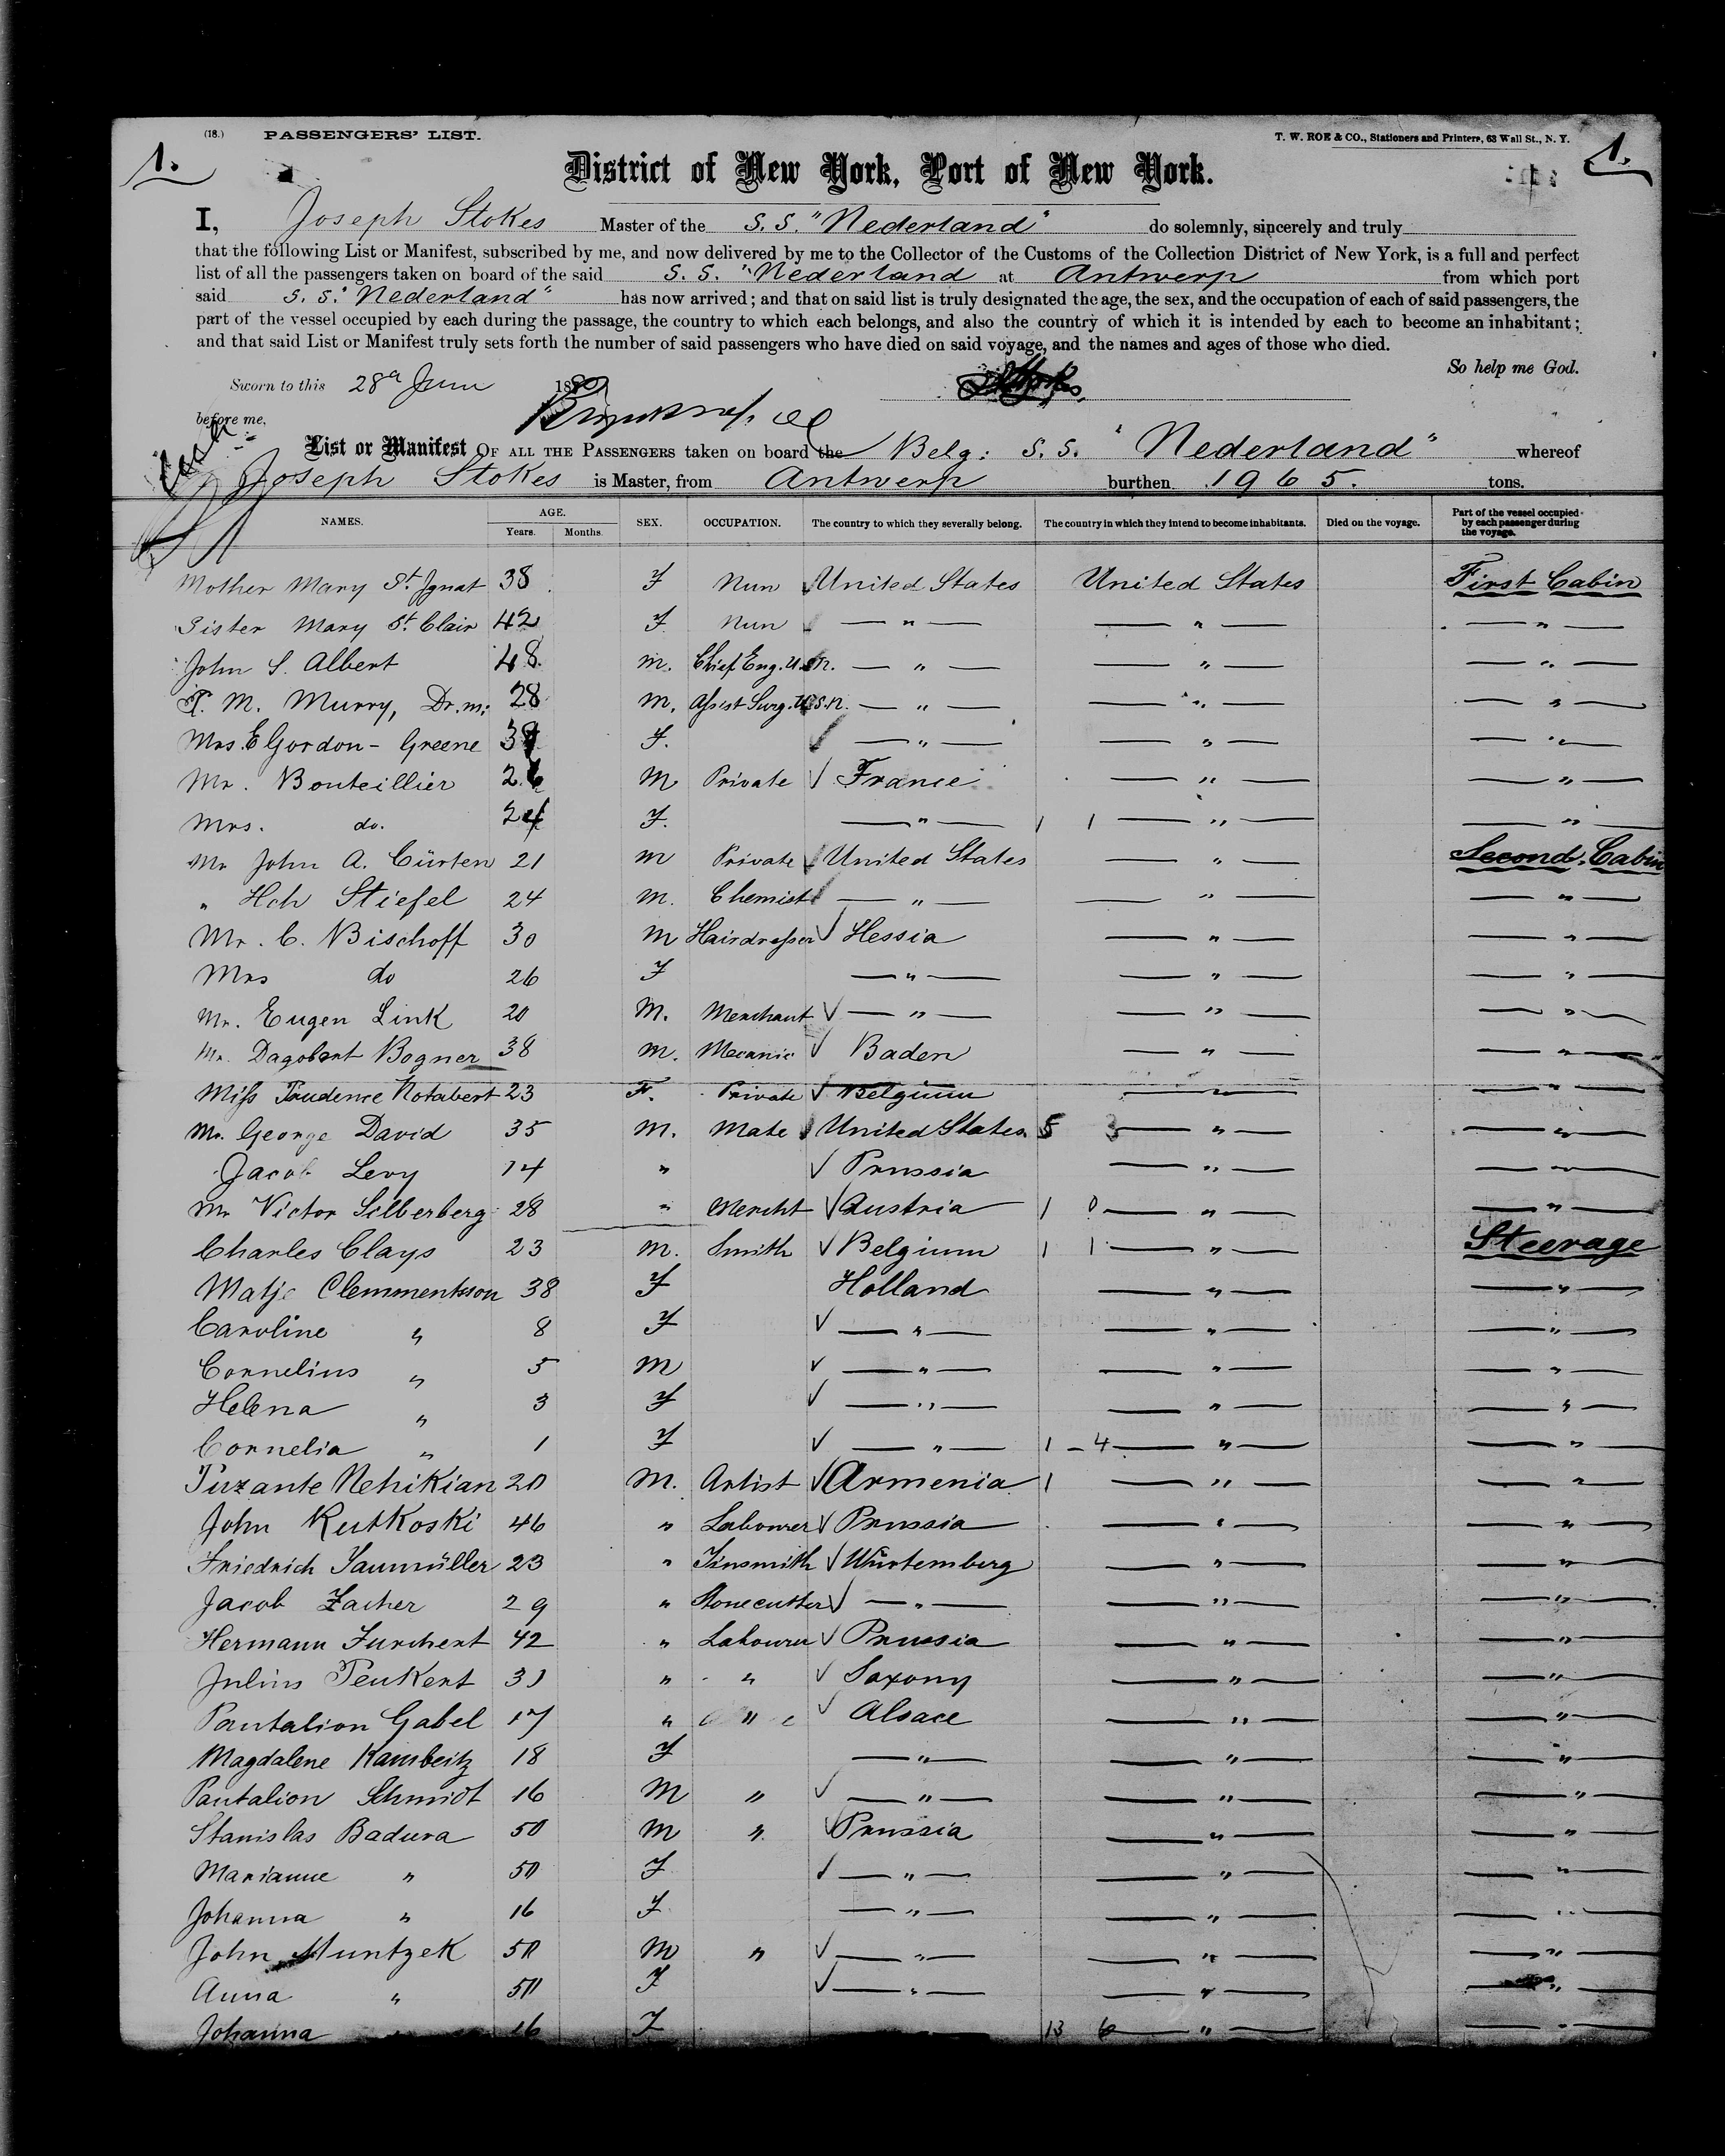 (18.) PASSENGERS' LIST. T. W. ROE & CO., Stationers and Printers, 63 Wall St., N. Y.
1. 1.
District of New York, Port of New York.
I, Joseph Stokes Master of the S. S. "Nederland" do solemnly, sincerely and truly
that the following List or Manifest, subscribed by me, and now delivered by me to the Collector of the Customs of the Collection District of New York, is a full and perfect
list of all the passengers taken on board of the said S. S. "Nederland at Antwerp from which port
said S. S. "Nederland" has now arrived; and that on said list is truly designated the age, the sex, and the occupation of each of said passengers, the
part of the vessel occupied by each during the passage, the country to which each belongs, and also the country of which it is intended by each to become an inhabitant;
and that said List or Manifest truly sets forth the number of said passengers who have died on said voyage, and the names and ages of those who died.
So help me God.
Sworn to this 28 June 1880
before me,
List or Manifest OF ALL THE PASSENGERS taken on board the Belg: S. S. "Nederland" whereof
Joseph Stokes is Master, from Antwerp burthen 1965. tons.
NAMES. AGE. Years. Months. SEX. OCCUPATION. The country to which they severally belong. The country in which they intend to become inhabitants. Died on the voyage. Part of the vessel occupied by each passenger during the voyage.
Mother Mary St. Ignat 38 F Nun United States United States First Cabin
Sister Mary St. Clair 42 F. Nun — " — — " — — " —
John S. Albert 48 M. Chief Eng. U.S.N. — " — — " — — " —
T. M. Murry, Dr. m: 28 M. Assist Surg. U.S.N. — " — — " — — " —
Mrs. E Gordon - Greene F. — " — — " — — " —
Mr. Bouteillier 26 M Private France — " — — " —
Mrs. do. 24 F. — " — 1 1 — " — — " —
Mr John A. Cürten 21 M Private United States — " — Second Cabin
" Hch Stiefel 24 M. Chemist — " — — " — — " —
Mr. C. Bischoff 30 M Hairdresser Hessia — " — — " —
Mrs do 26 F — " — — " — — " —
Mr. Eugen Link 20 M. Merchant — " — — " — — " —
Mr. Dagobert Bogner 38 M. Mecanic Baden — " — — " —
Miss Prudence Notabert 23 F. Private Belgium — " — — " —
Mr. George David 35 M. Mate United States 5 3 — " — — " —
Jacob Levy 14 " Prussia — " — — " —
Mr Victor Silberberg 28 " Mercht Austria 1 0 — " — — " —
Charles Clays 23 M. Smith Belgium 1 1 — " — Steerage
Matje Clemmentsson 38 F Holland — " — — " —
Caroline " 8 F — " — — " — — " —
Cornelius " 5 M — " — — " — — " —
Helena " 3 F — " — — " — — " —
Cornelia " 1 F — " — 1 - 4 — " — — " —
Tuzante Nehikian 20 M. Artist Armenia 1 — " — — " —
John Rutkoski 46 " Labourer Prussia — " — — " —
Friedrich Saumüller 23 " Tinsmith Würtemberg — " — — " —
Jacob Zacher 29 " Stonecutter — " — — " — — " —
Hermann Furchert 42 " Labourer Prussia — " — — " —
Julius Peukert 31 " " Saxony — " — — " —
Pantalion Gabel 17 " " Alsace — " — — " —
Magdalene Kambeitz 18 F — " — — " — — " —
Pantalion Schmidt 16 M " — " — — " — — " —
Stanislas Badura 50 M " Prussia — " — — " —
Marianne " 50 F — " — — " — — " —
Johanna " 16 F — " — — " — — " —
John Muntzek 50 M " — " — — " — — " —
Anna " 50 F — " — — " — — " —
Johanna " 16 F 13 6 — " — — " —